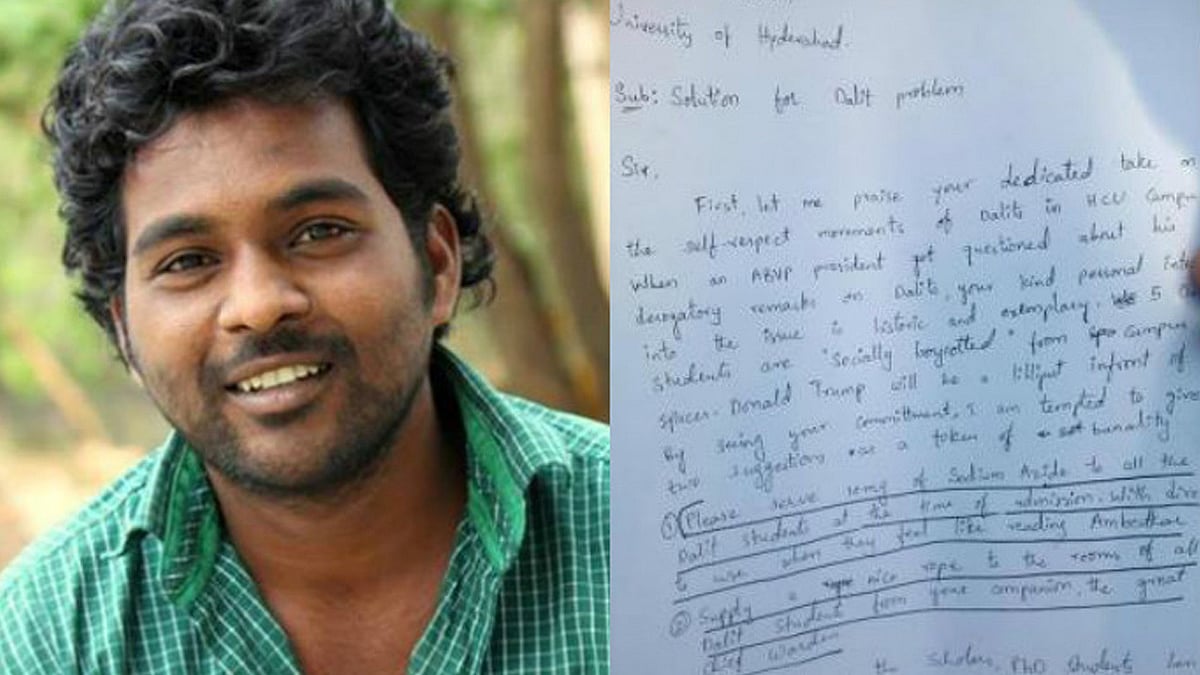 University of Hyderabad.
Sub: Solution for Dalit problem
Sir,
First, let me praise your dedicated take on
the self-respect movements of Dalits in HCU Campus
When an ABVP president got questioned about his
derogatory remarks on Dalits, your kind personal
into the issue is historic and exemplary. 5
students are "socially boycotted" from campus
spaces. Donald Trump will be a lilliput infront of
By seeing your committment, I am tempted to give
two suggestions as a token of banality
① Please serve 10mg of Sodium Azide to all the
Dalit students at the time of admission. With
to use when they feel like reading Ambedkar
② Supply a nice rope to the rooms of all
Dalit students from your companion, the great
Chief Warden
the scholars, PhD students